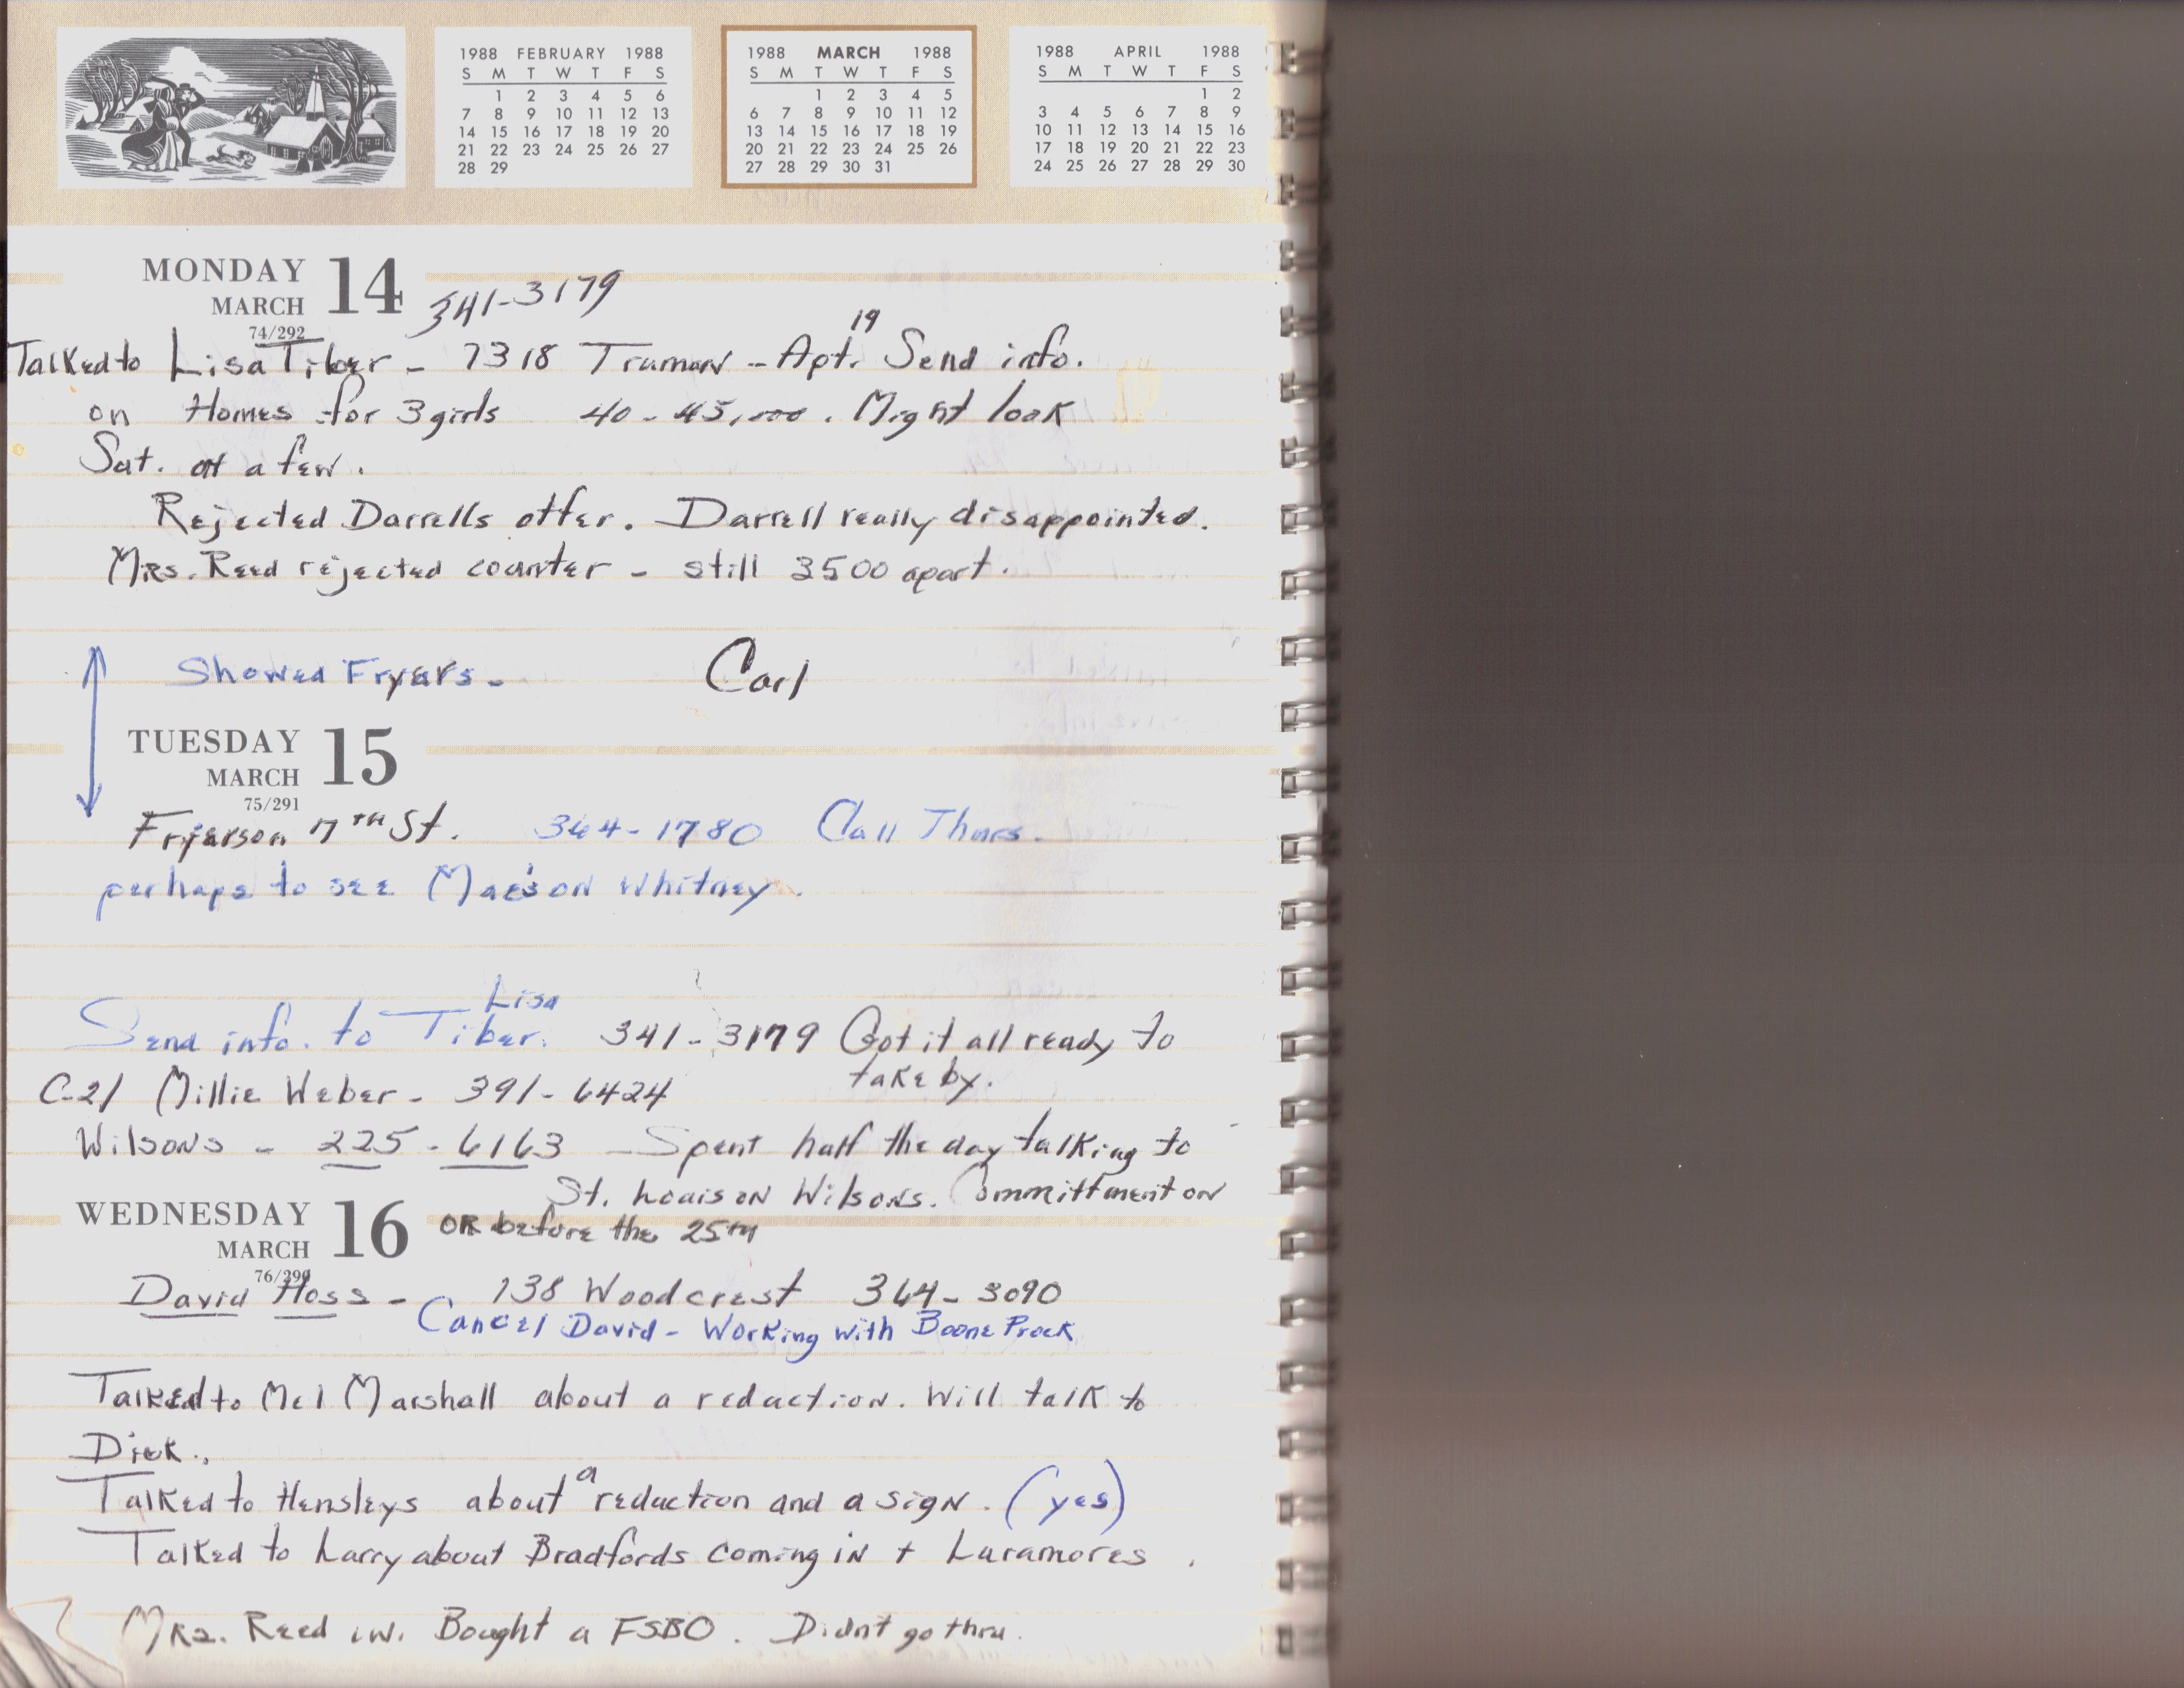 1988 FEBRUARY 1988
S M T W T F S
1 2 3 4 5 6
7 8 9 10 11 12 13
14 15 16 17 18 19 20
21 22 23 24 25 26 27
28 29
1988 MARCH 1988
S M T W T F S
1 2 3 4 5
6 7 8 9 10 11 12
13 14 15 16 17 18 19
20 21 22 23 24 25 26
27 28 29 30 31
1988 APRIL 1988
S M T W T F S
1 2
3 4 5 6 7 8 9
10 11 12 13 14 15 16
17 18 19 20 21 22 23
24 25 26 27 28 29 30
MONDAY 14
MARCH
74/292
341-3179
Talked to Lisa Tiber - 7318 Truman - Apt. 19 Send info.
on Homes for 3 girls 40-45,000. Might look
Sat. at a few.
Rejected Darrells offer. Darrell really disappointed.
Mrs. Reed rejected counter - still 3500 apart.
Showed Fryars - Carl
TUESDAY 15
MARCH
75/291
Fryerson 17th St. 364-1780 Call Thurs.
perhaps to see Mae's on Whitney.
Send info. to Lisa Tiber. 341-3179 Got it all ready to
take by.
C-21 Millie Weber - 391-6424
Wilsons - 225-6163 - Spent half the day talking to
St. Louis on Wilsons. Committment on
WEDNESDAY 16
MARCH
76/290
OR before the 25th
David Hoss - 138 Woodcrest 364-3090
Cancel David - Working with Boone Prock
Talked to Mel Marshall about a reduction. Will talk to
Dick.
Talked to Hensleys about a reduction and a sign. (yes)
Talked to Larry about Bradfords coming in + Laramores.
Mrs. Reed in. Bought a FSBO. Didnt go thru.